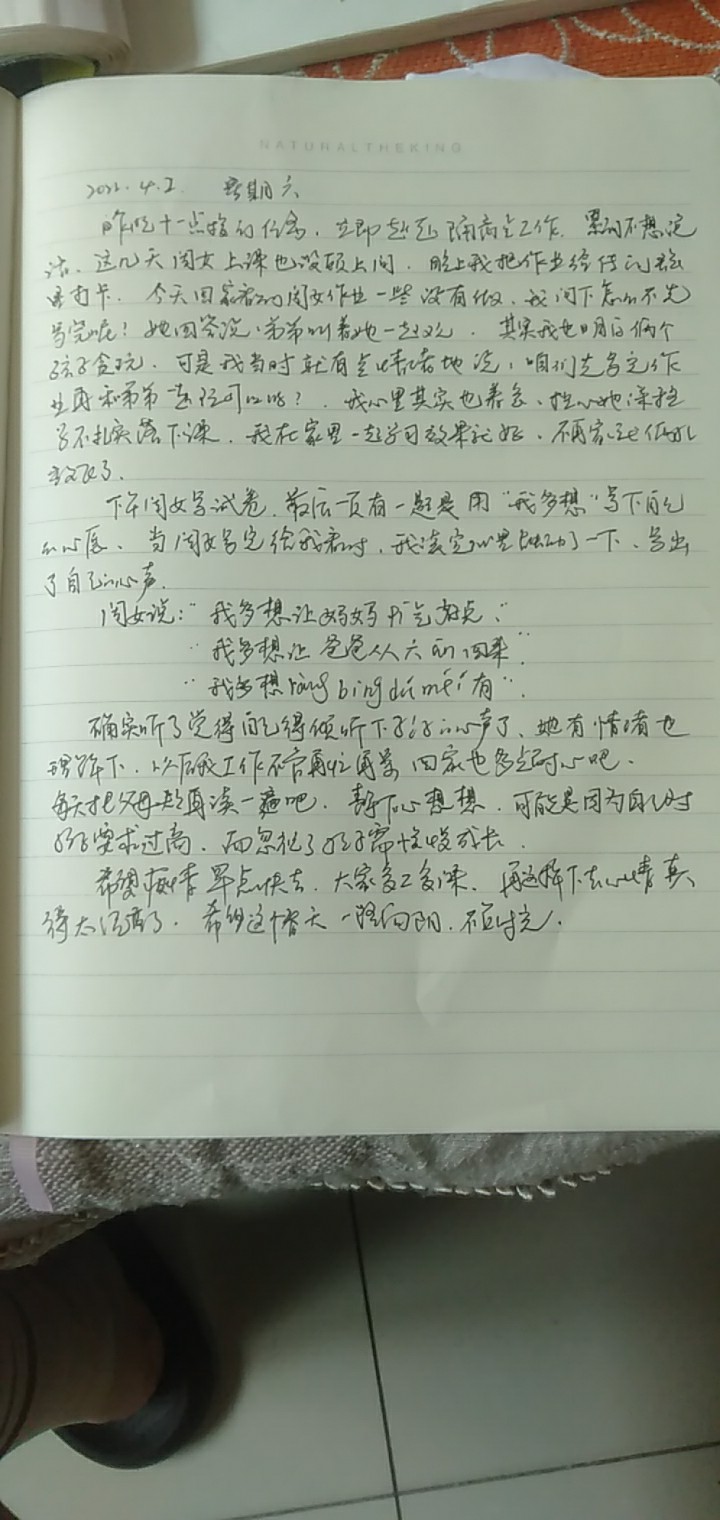 NATURALTHEKING
2022.4.2. 星期六
昨晚十一点接到任务，立即赶赴隔离点工作，累的不想说
话。这几天闺女上课也没顾上问，晚上我把作业给传到
打卡。今天回家看到闺女作业一些没有做，我问下怎么不先
写完呢！她回答说：弟弟叫着她一起玩。其实我也明白俩个
孩子贪玩，可是我当时就有点情绪地说，咱们先写完作
业再和弟弟一起玩可以吗？我心里其实也着急，担心她
学不扎实落下课，我在家里一起学习效果还好，不再家
下午闺女写试卷，最后一页有一题是用“我多想”写下自己
的心愿，当闺女写完给我看时，我心里触动了一下，写出
了自己的心声。
闺女说：“我多想让妈妈脾气好点，”
“我多想让爸爸从太原回来”
“我多想ràng bìng dú méi 有”。
确实听了觉得自己得倾听下孩子的心声了，她有情绪也
理解下，以后我工作不管再忙再累回家也多点耐心吧。
每天把父母 再读一遍吧，静下心想想，可能是因为自己对
孩子要求过高，而忽视了孩子需慢慢成长。
希望疫情早点快去，大家多工多课，再这样下去心情真
得太沉重了。希望这个春天一路向阳，不负时光。